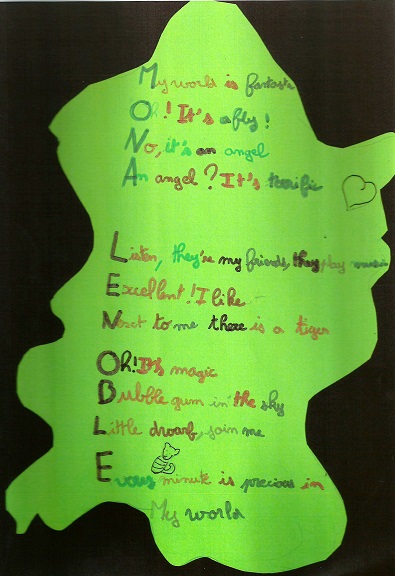 My world is fantastic
Oh! It's a fly!
No, it's an angel
An angel? It's terrific
Listen, they're my friends, they play music
Excellent! I like
Next to me there is a tiger
Oh! It's magic
Bubble gum in the sky
Little dwarf, join me
Every minute is precious in
My world